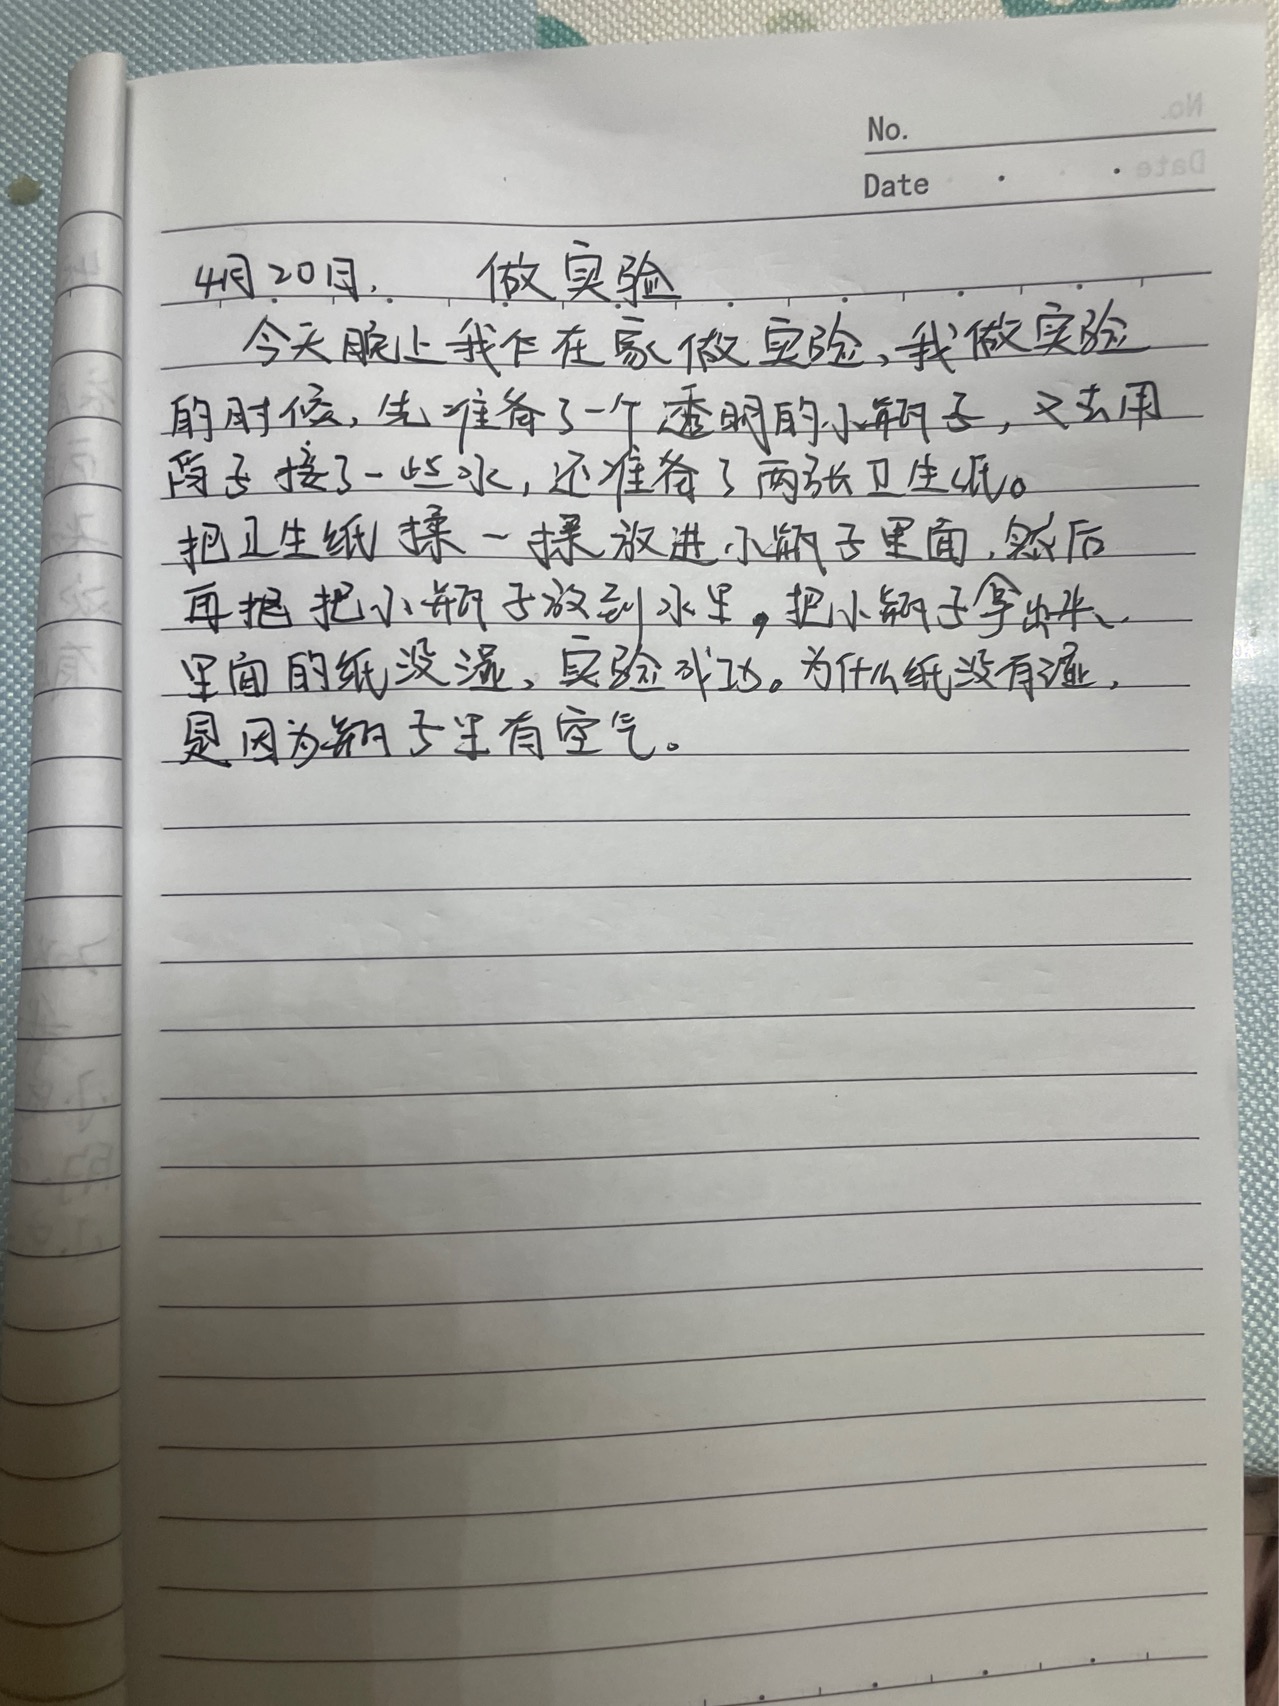 No.
Date
4月20日. 做实验
今天晚上我在家做实验、我做实验
的时候,先准备了一个透明的小瓶子,又去用
子接了一些水,还准备了两张卫生纸。
把卫生纸揉一揉放进小瓶子里面,然后
再把小瓶子放到水里,把小瓶子拿出来、
里面的纸没湿、实验成功。为什么纸没有湿,
是因为瓶子里有空气。